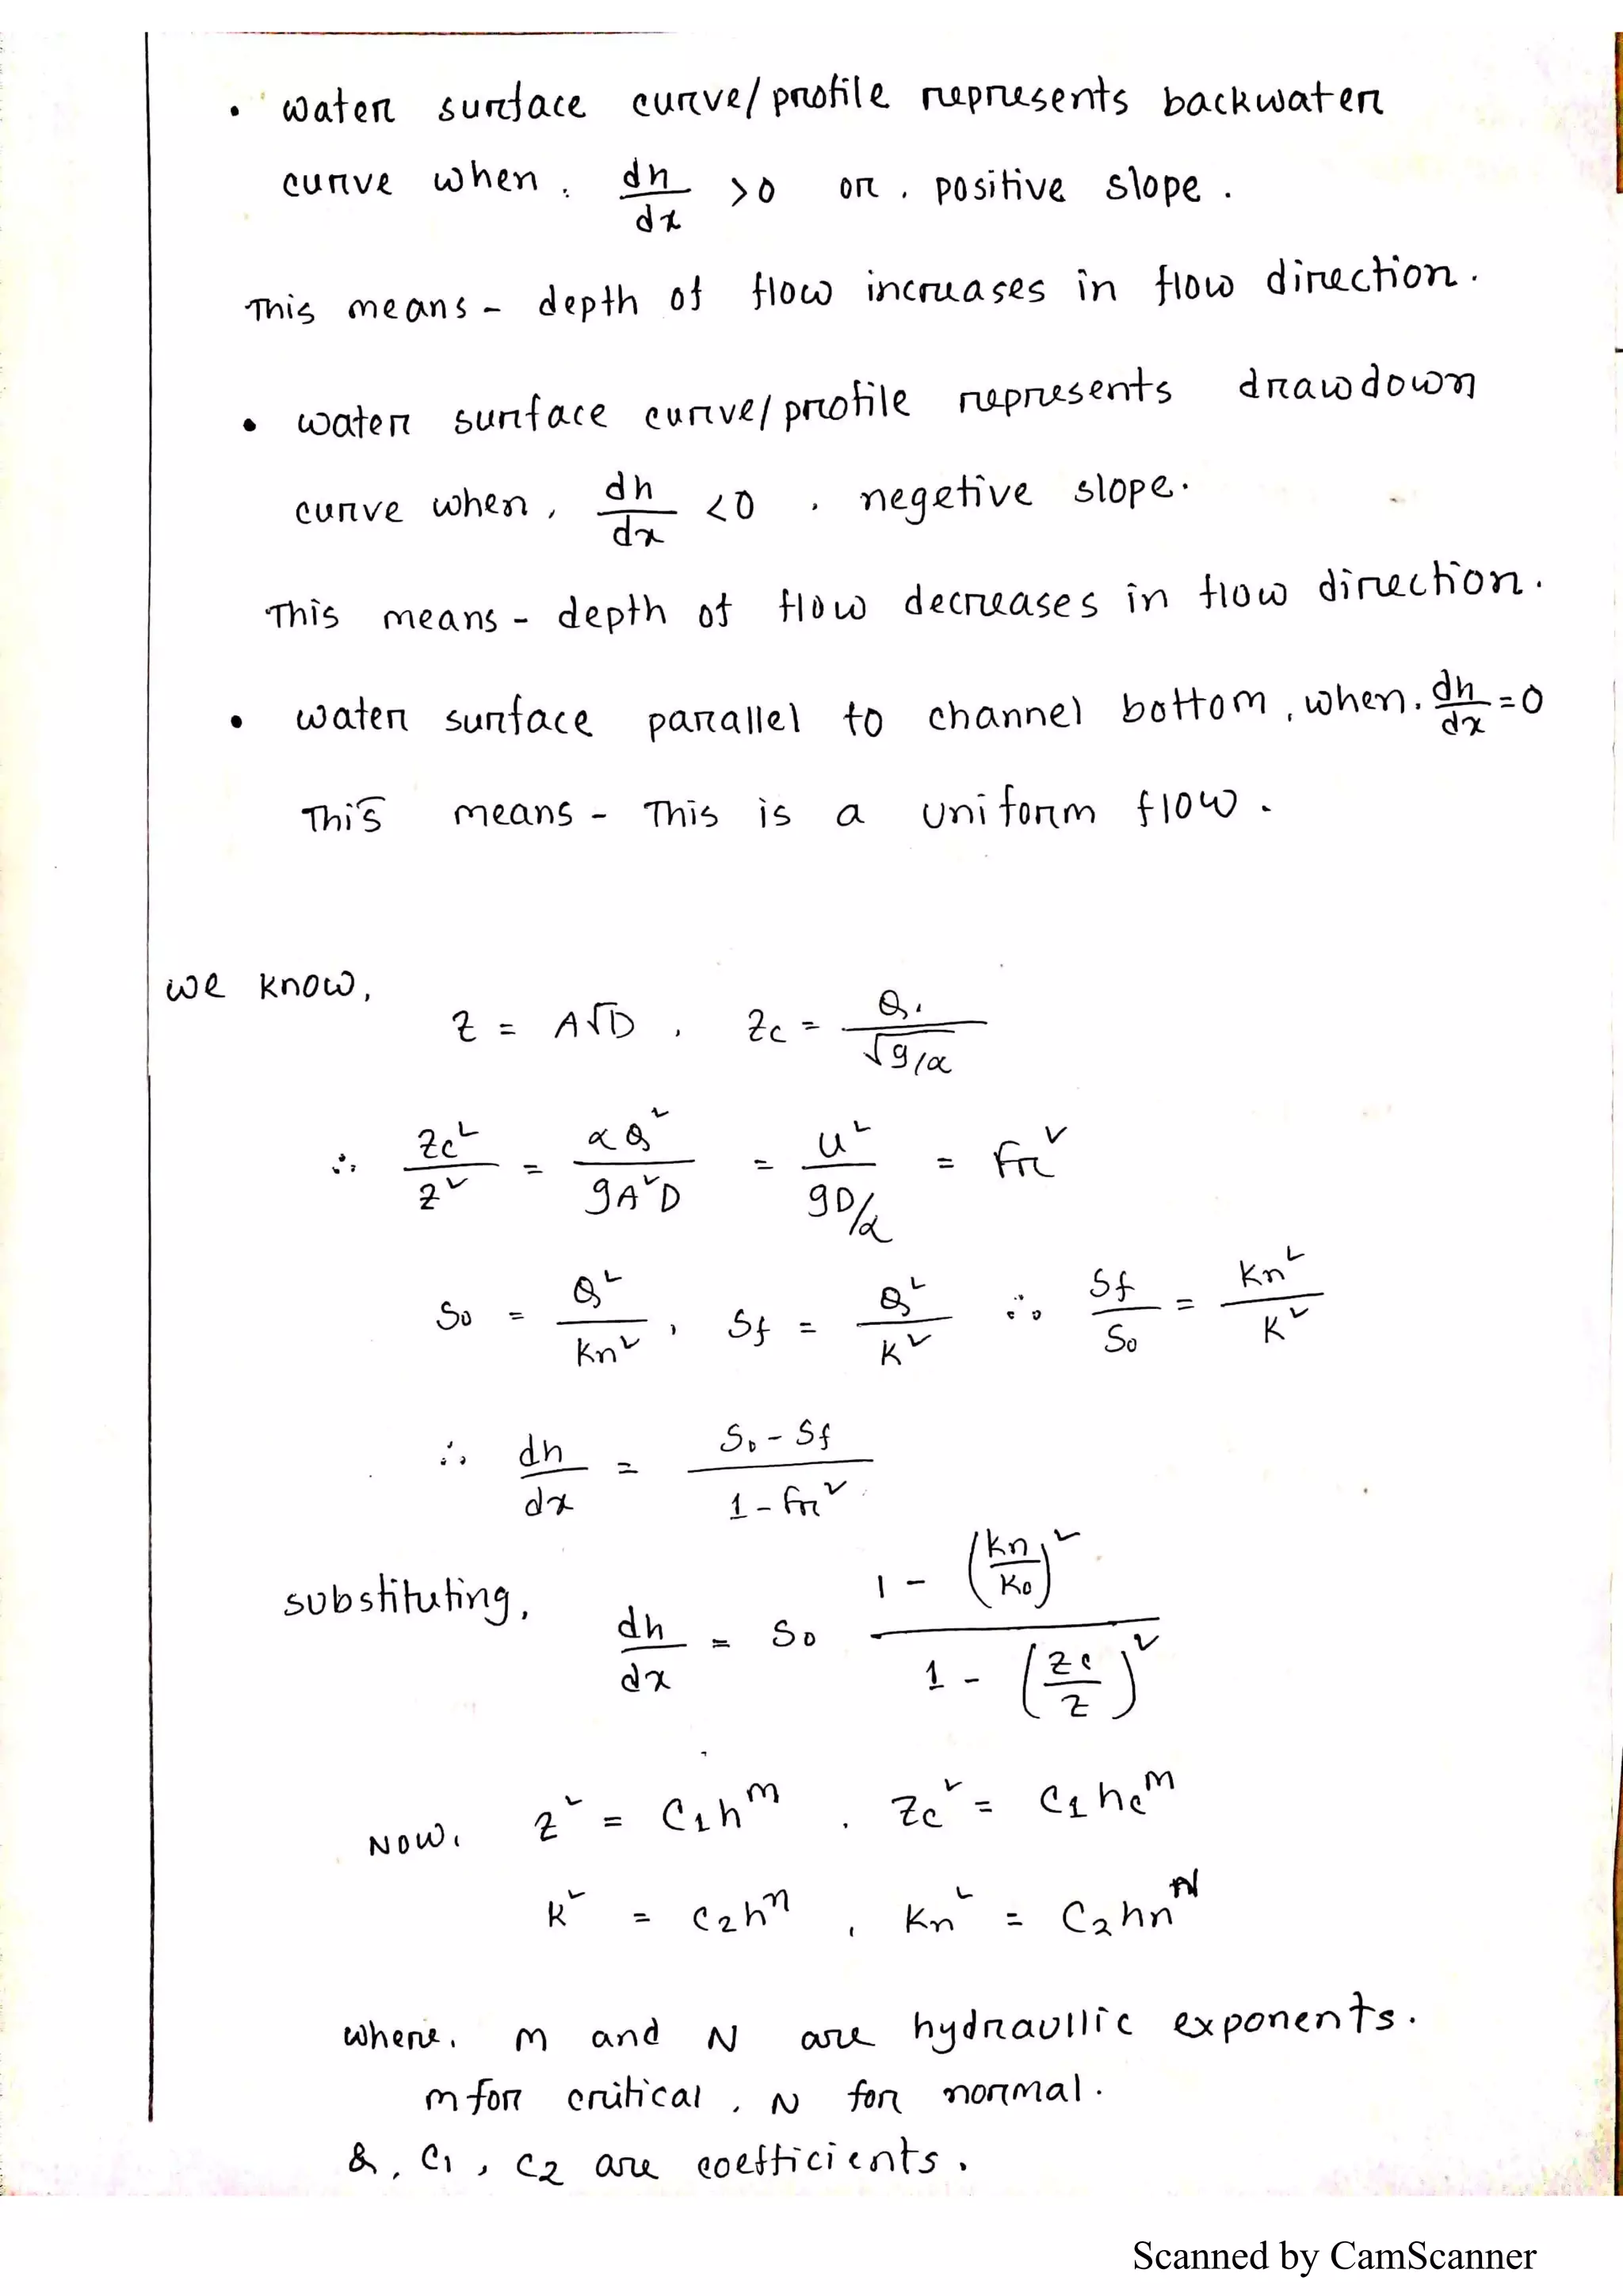 • water surface curve/profile represents backwater
curve when, dh/dx >0 or, positive slope.
This means - depth of flow increases in flow direction.
• water surface curve/profile represents drawdown
curve when, dh/dx <0, negetive slope.
This means - depth of flow decreases in flow direction.
• water surface parallel to channel bottom, when, dh/dx =0
This means - This is a uniform flow.
we know,
Z = A√D, Zc = Q/√g/α
∴ Zc²/Z² = αQ²/gA²D = U²/gD/α = Fr²
S0 = Q²/Kn², Sf = Q²/K² ∴ Sf/S0 = Kn²/K²
∴ dh/dx = S0 - Sf / 1 - Fr²
substituting, dh/dx = S0 1 - (Kn/K0)² / 1 - (Zc/Z)²
Now, Z² = C1h^M, Zc² = C1hc^M
K² = C2h^n, Kn² = C2hn^N
where, M and N are hydraullic exponents.
M for critical, N for normal.
&, C1, C2 are coefficients.
Scanned by CamScanner